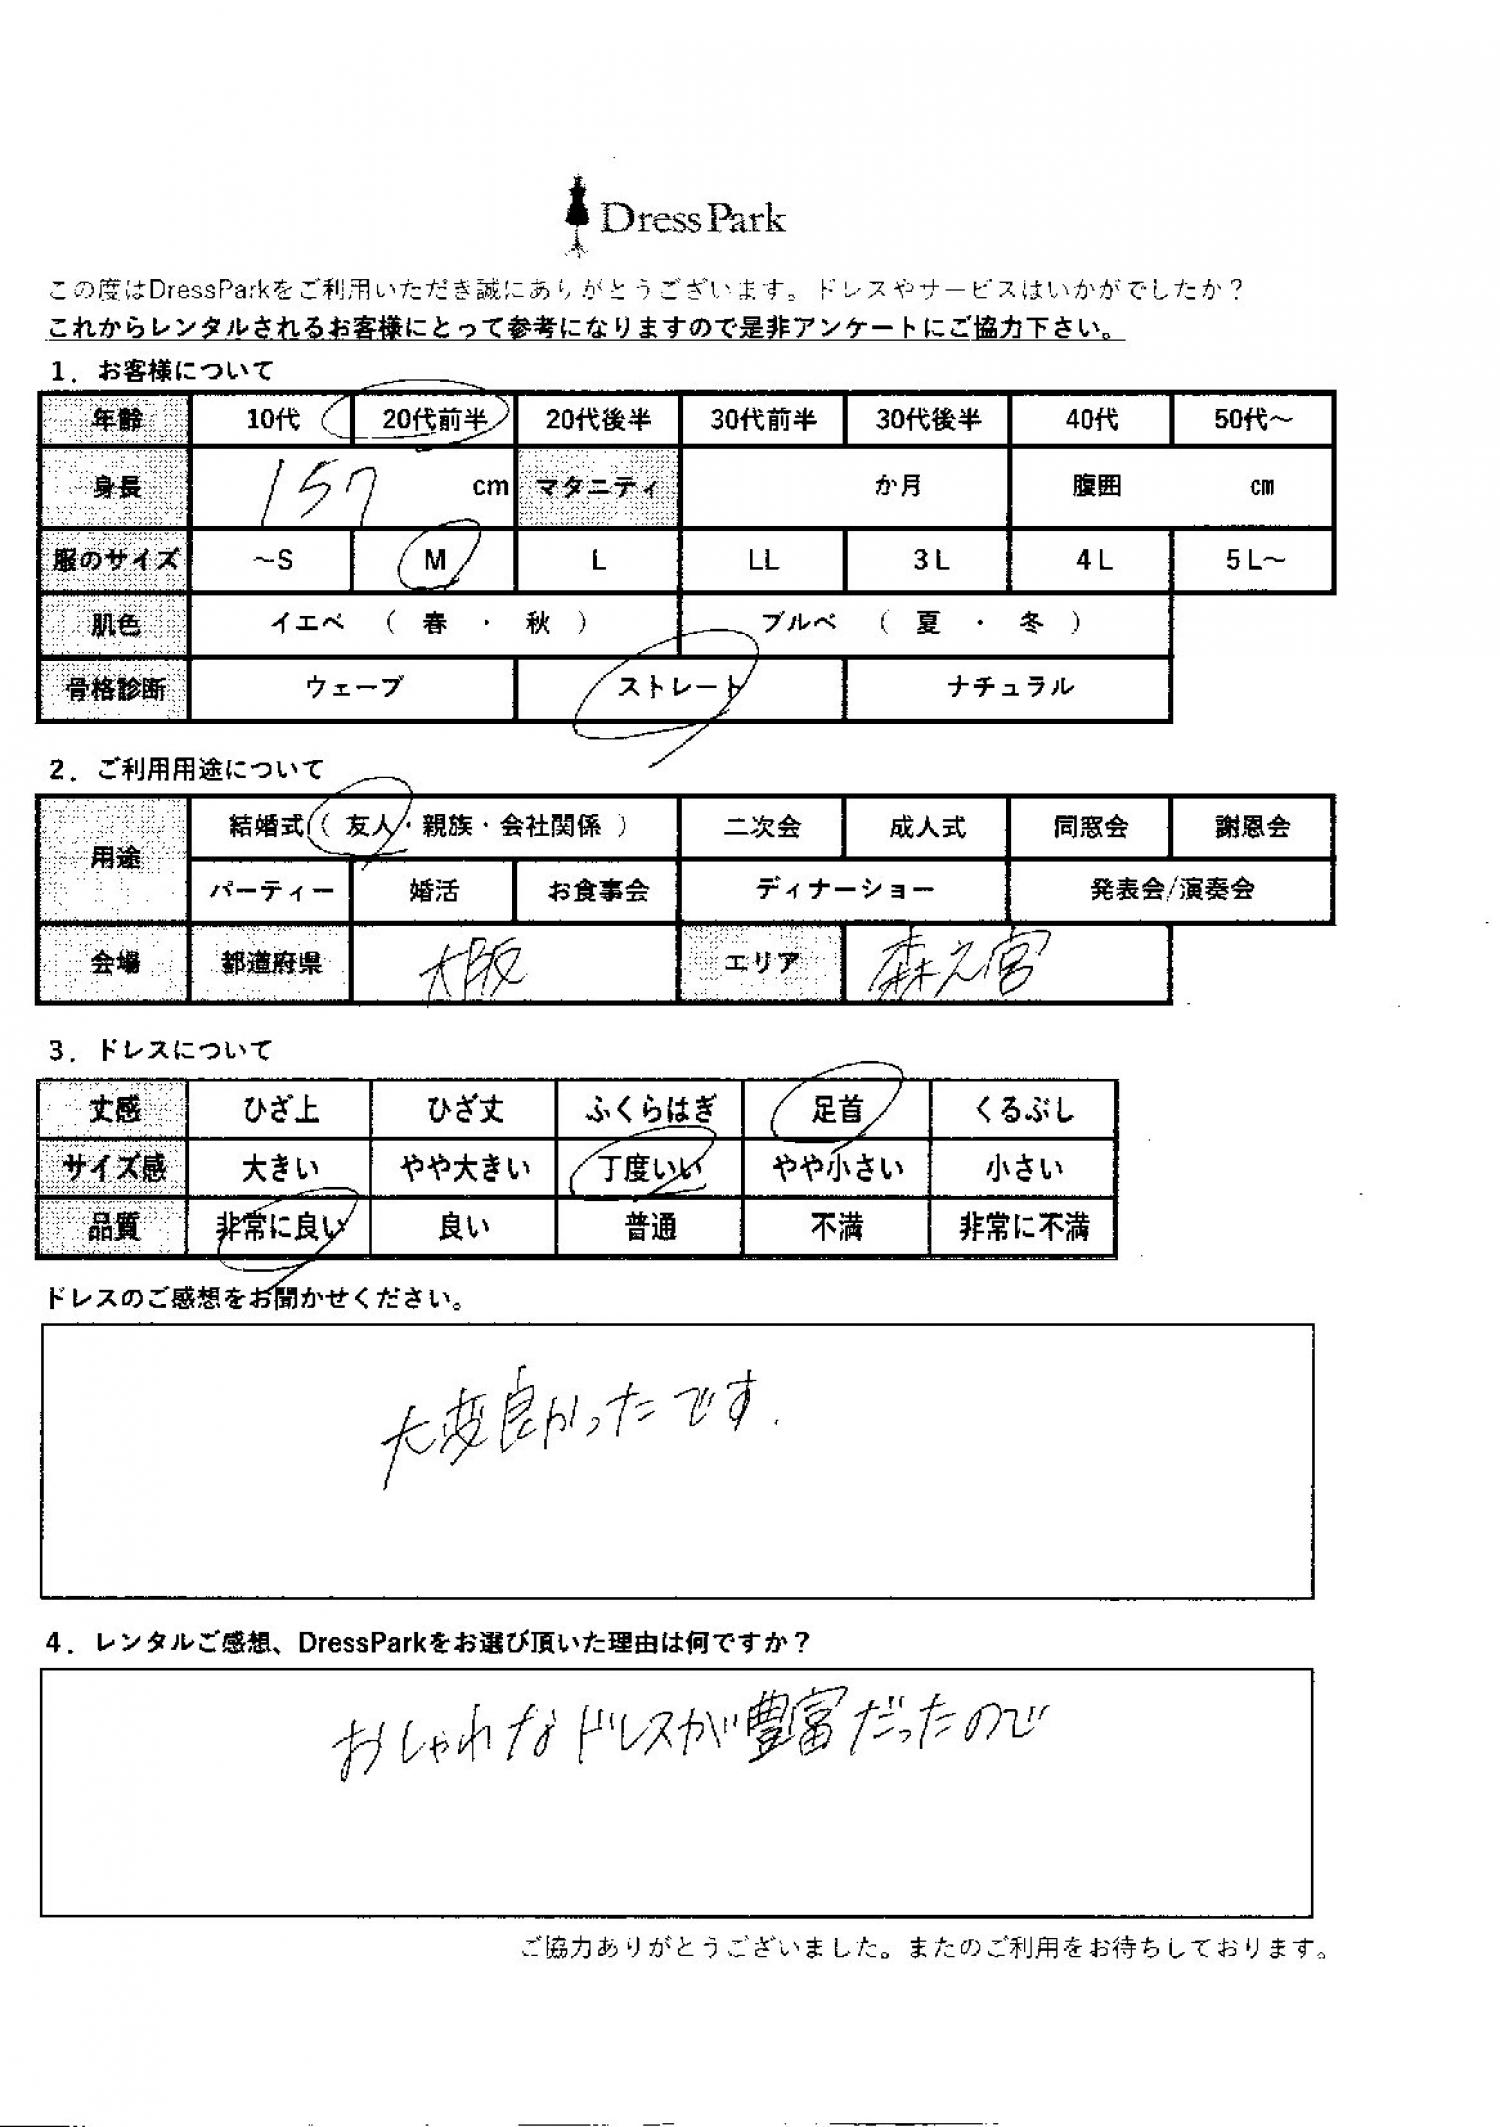 DressPark
この度はDressParkをご利用いただき誠にありがとうございます。ドレスやサービスはいかがでしたか？
これからレンタルされるお客様にとって参考になりますので是非アンケートにご協力下さい。
1．お客様について
年齢 10代 20代前半 20代後半 30代前半 30代後半 40代 50代～
身長 157 cm マタニティ か月 腹囲 ㎝
服のサイズ ～S M L LL 3L 4L 5L～
肌色 イエベ （ 春 ・ 秋 ） ブルベ （ 夏 ・ 冬 ）
骨格診断 ウェーブ ストレート ナチュラル
2．ご利用用途について
用途 結婚式（ 友人・親族・会社関係 ） 二次会 成人式 同窓会 謝恩会
パーティー 婚活 お食事会 ディナーショー 発表会/演奏会
会場 都道府県 大阪 エリア 森之宮
3．ドレスについて
丈感 ひざ上 ひざ丈 ふくらはぎ 足首 くるぶし
サイズ感 大きい やや大きい 丁度いい やや小さい 小さい
品質 非常に良い 良い 普通 不満 非常に不満
ドレスのご感想をお聞かせください。
大変良かったです.
4．レンタルご感想、DressParkをお選び頂いた理由は何ですか？
おしゃれなドレスが豊富だったので
ご協力ありがとうございました。またのご利用をお待ちしております。